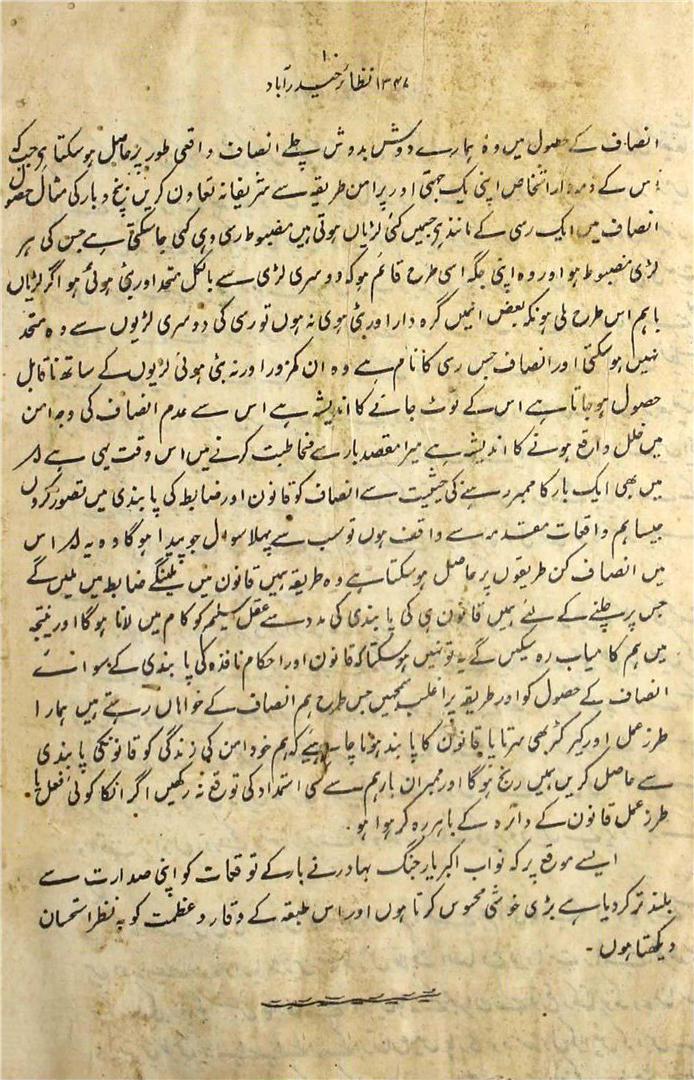 ۱۰
۱۳۴۷ نظائر حیدرآباد
انصاف کے حصول میں وہ ہمارے دوش بدوش چلے انصاف واقعی طور پر حاصل ہوسکتا ہے جبکہ
اس کے ذمہ دار اشخاص اپنی یک جہتی اور پرامن طریقہ سے شریفانہ تعاون کریں بنچ و بار کی مثال حصول
انصاف میں ایک رسی کے مانند ہے جسمیں کئی لڑیاں ہوتی ہیں مضبوط رسی وہی کہی جاسکتی ہے جس کی ہر
لڑی مضبوط ہو اور وہ اپنی جگہ اسی طرح قائم ہو کہ دوسری لڑی سے بالکل متحد اور بٹی ہوئی ہو اگر لڑیاں
باہم اس طرح ملی ہونکہ بعض انمیں گرہ دار اور بٹی ہوی نہ ہوں تو رسی کی دوسری لڑیوں سے وہ متحد
نہیں ہوسکتی اور انصاف جس رسی کا نام ہے وہ ان کمزور اور نہ بٹی ہوئی لڑیوں کے ساتھ ناقابل
حصول ہوجاتا ہے اس کے ٹوٹ جانے کا اندیشہ ہے اس سے عدم انصاف کی وجہ امن
میں خلل واقع ہونے کا اندیشہ ہے میرا مقصد بار سے مخاطبت کرنے میں اس وقت یہی ہے کہ
میں بھی ایک بار کا ممبر رہنے کی حیثیت سے انصاف کو قانون اور ضابطہ کی پابندی میں تصور کروں
جیسا ہم واقعات مقدمہ سے واقف ہوں تو سب سے پہلا سوال جو پیدا ہوگا وہ یہ کہ اس
میں انصاف کن طریقوں پر حاصل ہوسکتا ہے وہ طریقہ ہمیں قانون میں ملینگے ضابطہ میں ملیں گے
جس پر چلنے کے لئے ہمیں قانون ہی کی پابندی کی مدد سے عقل سلیم کو کام میں لانا ہوگا اور نتیجہ
میں ہم کامیاب رہ سکیں گے یہ تو نہیں ہوسکتا کہ قانون اور احکام نافذہ کی پابندی کے سوائے
انصاف کے حصول کو اور طریقہ پر اغلب سمجھیں جس طرح ہم انصاف کے خواہاں رہتے ہیں ہمارا
طرز عمل اور کیرکٹر بھی سرتاپا قانون کا پابند ہونا چاہیئے کہ ہم خود امن کی زندگی کو قانونکی پابندی
سے حاصل کریں ہمیں رنج ہوگا اور ممبران بار ہم سے کسی استمداد کی توقع نہ رکھیں اگر انکا کوئی فعل یا
طرز عمل قانون کے دائرہ کے باہر رہ کر ہوا ہو۔
ایسے موقع پر کہ نواب اکبر یار جنگ بہادر نے بار کے توقعات کو اپنی صدارت سے
بلند تر کردیا ہے بڑی خوشی محسوس کرتا ہوں اور اس طبقہ کے وقار و عظمت کو بہ نظر استحسان
دیکھتا ہوں۔